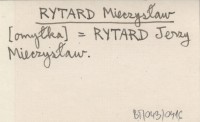 RYTARD Mieczysław
[omyłka] = RYTARD Jerzy
Mieczysław.